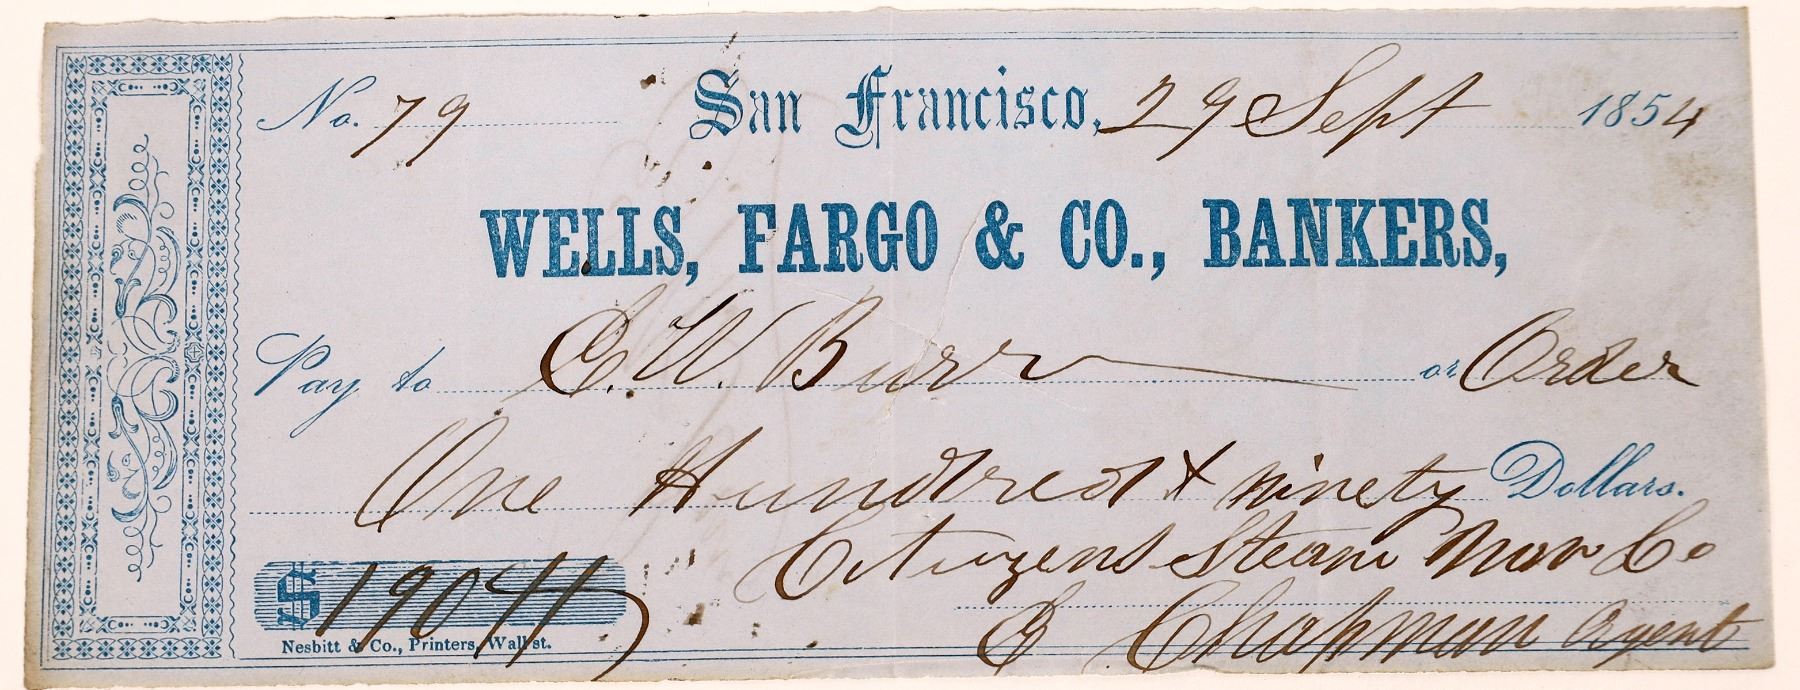 No. 79 San Francisco, 29 Sept 1854
WELLS, FARGO & CO., BANKERS,
Pay to C. W. Burr or Order
One Hundred & ninety Dollars.
Citizens Steam Nav Co
$ 190
Chapman Agent
Nesbitt & Co., Printers, Wall st.